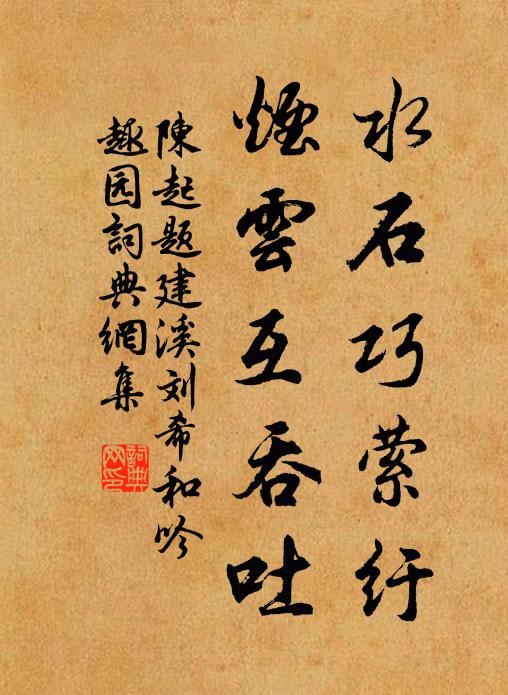 水石巧萦纡
煙雲互吞吐
陳起题建溪刘希和吟
趣园詞典網集
詞典网印